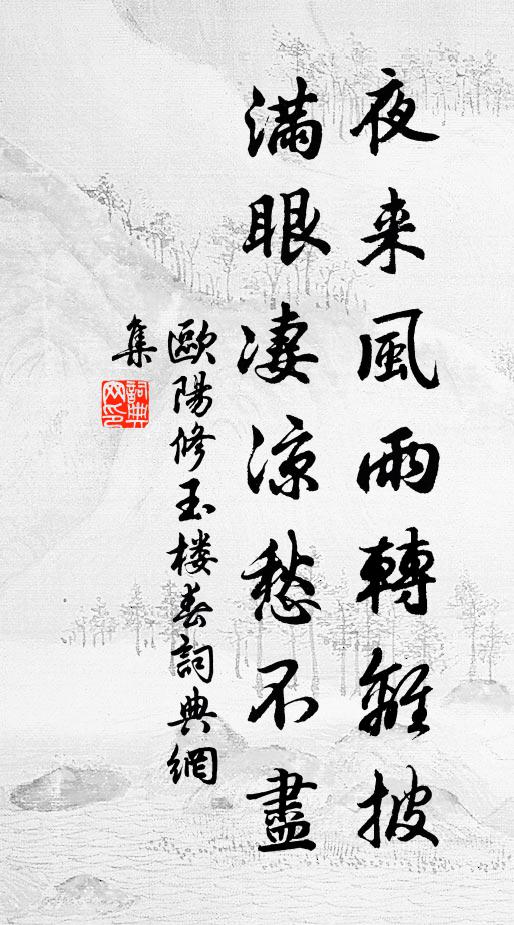 夜来風雨轉離披
滿眼淒涼愁不盡
歐陽修玉楼春詞典網
集
詞典
网印